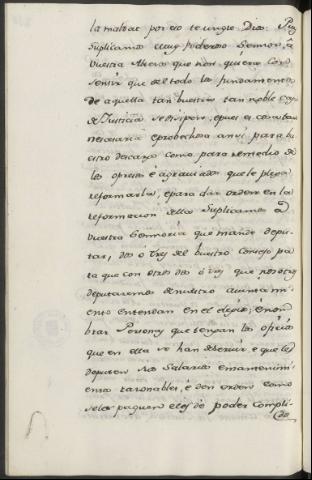 la maldat por eso te ungio Dios. Por
Suplicamos muy poderoso Sennor, â
Vuestra Alteza que non quiera con
sentir que del todo los fundamentos
de aquella tan buestra tan noble casa
de Justicia se disipen, epues es cosa tan
necesaria eprobechosa ansi para bu
estro descargo como para remedio de
los opresos é agraviados que le plega
reformarla, epara dar orden en la
reformacion della Suplicamos â
Vuestra Sennoria que mande depu
tar, dos ó tres del buestro Consejo pa
ra que con otros dos ó tres que nosotros
deputaremos de nuestro ayuntami
ento entendan en el elegir, é nom
brar Personas que tengan los oficios
que en ella se han de servir é que les
deputen sus Salarios é mantenimi
entos razonables, é den orden como
se les paguen e les de poder Compli
do